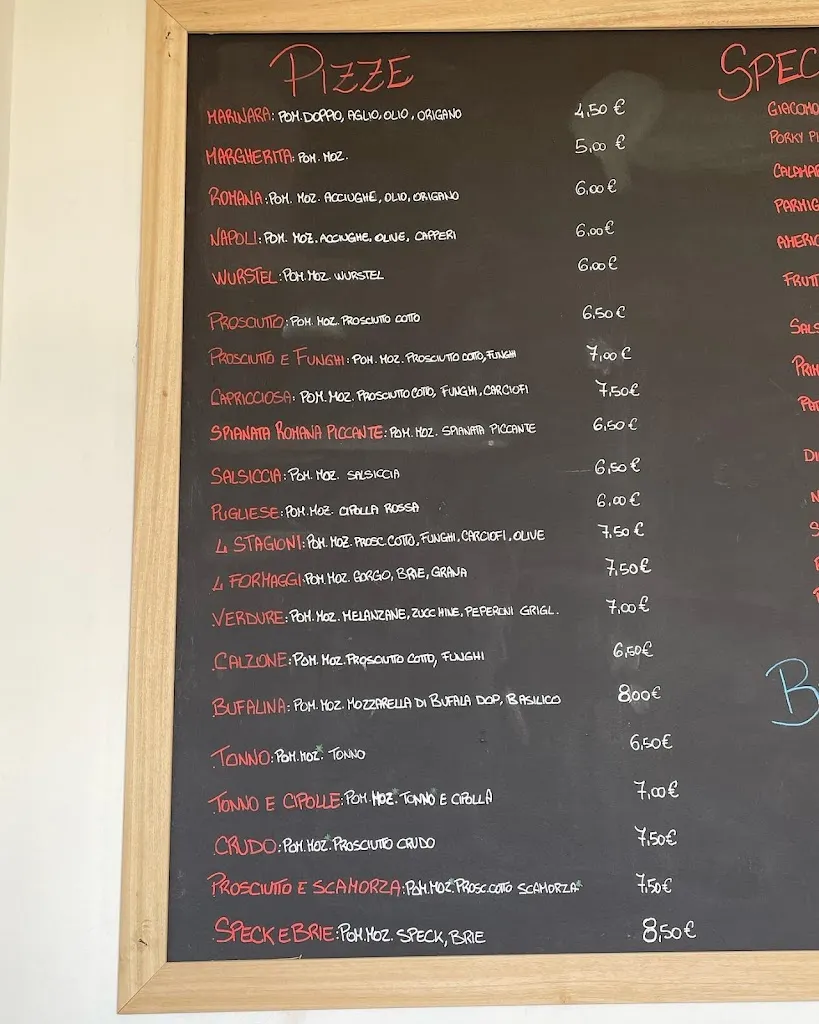 PIZZE
MARINARA: POM. DOPPIO, AGLIO, OLIO, ORIGANO 4,50 €
MARGHERITA: POM. MOZ. 5,00 €
ROMANA: POM. MOZ. ACCIUGHE, OLIO, ORIGANO 6,00 €
NAPOLI: POM. MOZ. ACCIUGHE, OLIVE, CAPPERI 6,00 €
WURSTEL: POM. MOZ. WURSTEL 6,00 €
PROSCIUTTO: POM. MOZ. PROSCIUTTO COTTO 6,50 €
PROSCIUTTO E FUNGHI: POM. MOZ. PROSCIUTTO COTTO, FUNGHI 7,00 €
CAPRICCIOSA: POM. MOZ. PROSCIUTTO COTTO, FUNGHI, CARCIOFI 7,50 €
SPIANATA ROMANA PICCANTE: POM. MOZ. SPIANATA PICCANTE 6,50 €
SALSICCIA: POM. MOZ. SALSICCIA 6,50 €
PUGLIESE: POM. MOZ. CIPOLLA ROSSA 6,00 €
4 STAGIONI: POM. MOZ. PROSC. COTTO, FUNGHI, CARCIOFI, OLIVE 7,50 €
4 FORMAGGI: POM. MOZ. GORGO, BRIE, GRANA 7,50 €
VERDURE: POM. MOZ. MELANZANE, ZUCCHINE, PEPERONI GRIGL. 7,00 €
CALZONE: POM. MOZ. PROSCIUTTO COTTO, FUNGHI 6,50 €
BUFALINA: POM. MOZ. MOZZARELLA DI BUFALA DOP, BASILICO 8,00 €
TONNO: POM. MOZ.* TONNO 6,50 €
TONNO E CIPOLLE: POM. MOZ.* TONNO E CIPOLLA 7,00 €
CRUDO: POM. MOZ.* PROSCIUTTO CRUDO 7,50 €
PROSCIUTTO E SCAMORZA: POM. MOZ.* PROSC. COTTO SCAMORZA* 7,50 €
SPECK E BRIE: POM. MOZ. SPECK, BRIE 8,50 €
SPEC
GIACOMO
PORKY PI
CALAMAR
PARMIG
AMERIC
FRUTT
SALS
PRIM
DI
B